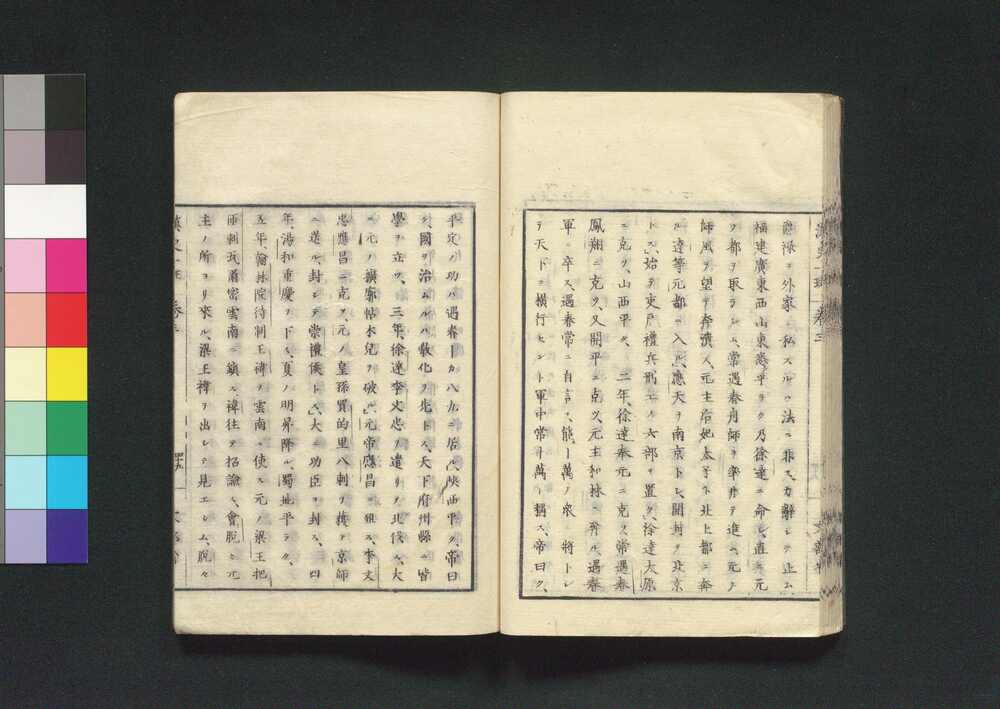 爵禄ヲ外家ニ私スルハ法ニ非ス、力辭シテ止ム、
福建廣東西山東悉平ラク乃徐達ニ命シ、直ニ元
ノ都ヲ取ラシム、常遇春舟師ヲ率井テ進ム元ノ
師風ヲ望テ奔潰ス、元主后妃太子ト北上都ニ奔
ル、達等元都ニ入ル、應天ヲ南京トシ、開封ヲ北京
トス、始テ吏戸禮兵刑工ノ六部ヲ置ク、徐達大原
ニ克ク、山西平ク、二年、徐達奉元ニ克ク、常遇春
鳳翔ニ克ク、又開平ニ克ク、元主和林ニ奔ル、遇春
軍ニ卒ス、遇春常ニ自言ス、能ー萬ノ衆 將トレ
テ天下ニ横行セント軍中常十萬ト稱ス、帝曰ク、
平定ノ功ハ遇春十カ八九ニ居ル、陝西平ク、帝曰
ク、國ヲ治ムルハ敎化ヲ先トス、天下府州縣ニ皆
學ヲ立ツ、三年、徐達李文忠ヲ遣リテ北伐ス、大
ニ元ノ擴廓帖木兒ヲ破ル、元帝應昌ニ殂ス、李文
忠應昌ニ克ク、元ノ皇孫買的里八剌ヲ獲テ京師
ニ送ル、封シテ崇禮侯トス、大ニ功臣ヲ封ス、四
年、湯和重慶ヲ下ス、夏ノ明昇降ル、蜀地平ラク、
五年、翰林院待制王褘ヲ雲南ニ使ス元ノ梁王把
匝剌瓦爾密雲南ニ鎮ス、褘往テ招諭ス、會脱々元
主ノ所ヨリ來ル、梁王褘ヲ出シテ見エシム、脱々